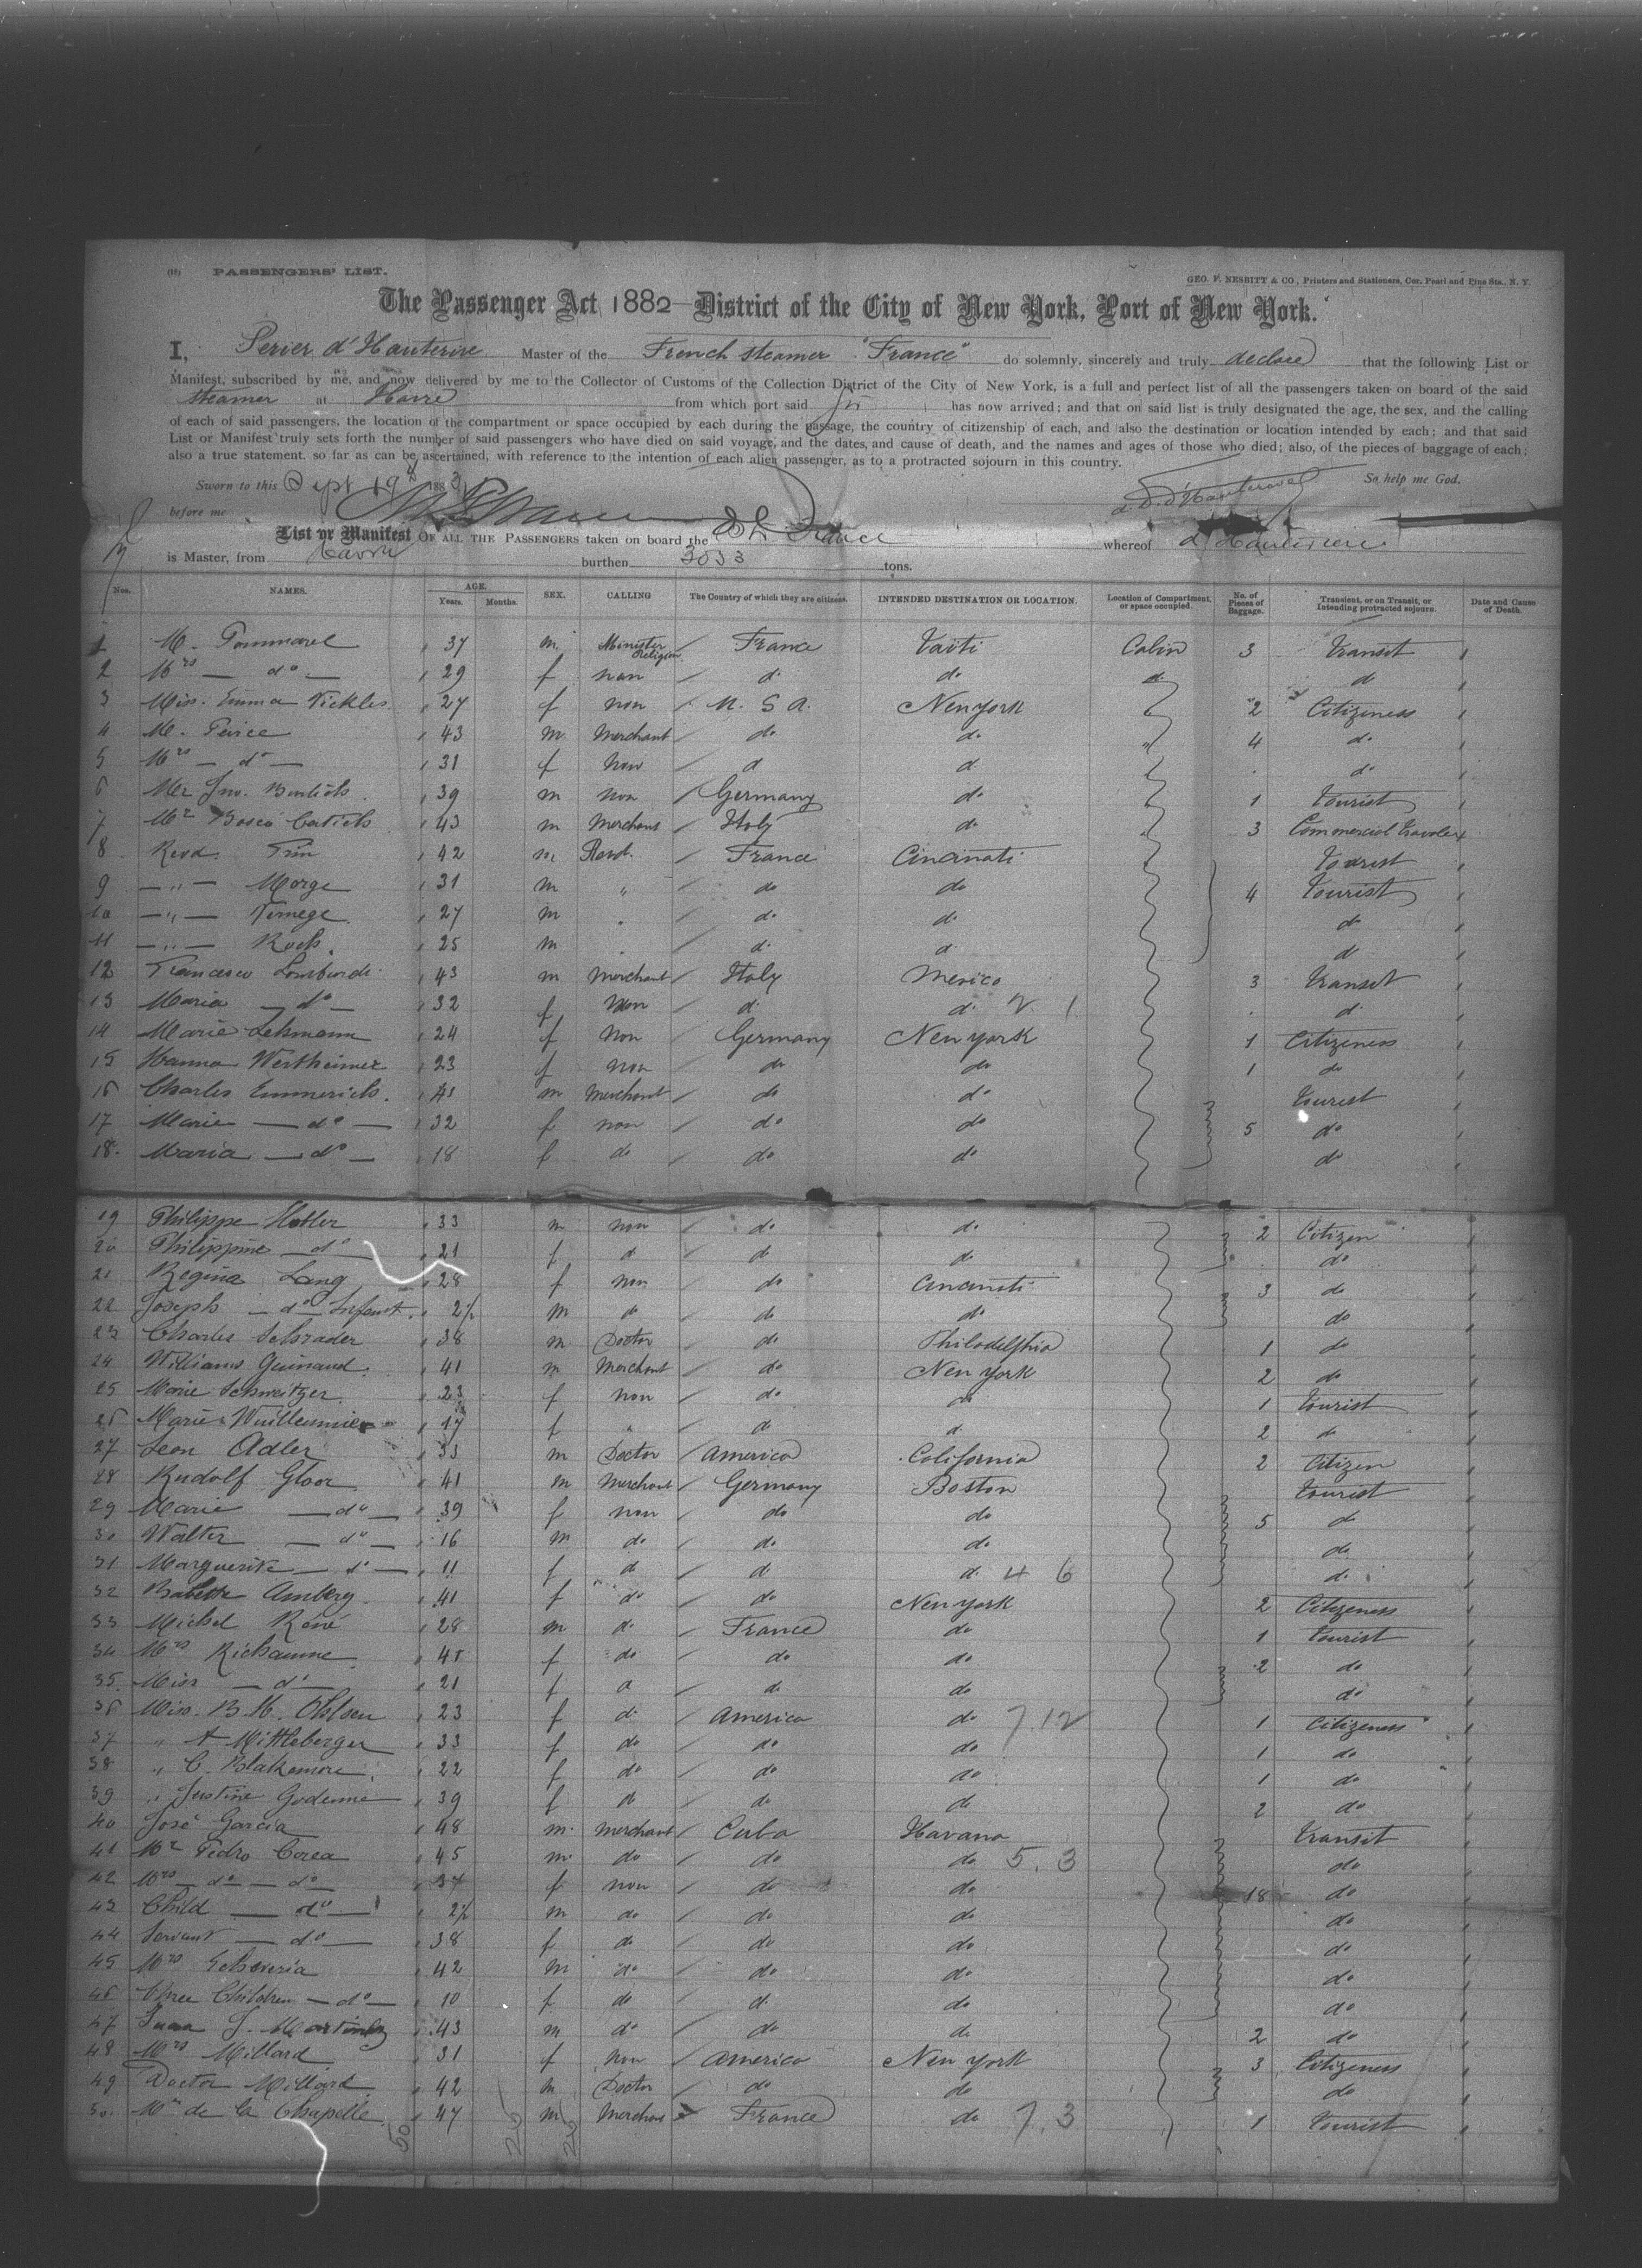 (11) PASSENGERS' LIST.
GEO. F. NESBITT & CO., Printers and Stationers, Cor. Pearl and Pine Sts., N. Y.
The Passenger Act 1882 — District of the City of New York, Port of New York.
I, Perier d'Hauterive Master of the French steamer "France" do solemnly, sincerely and truly declare that the following List or
Manifest, subscribed by me, and now delivered by me to the Collector of Customs of the Collection District of the City of New York, is a full and perfect list of all the passengers taken on board of the said
steamer at Havre from which port said has now arrived; and that on said list is truly designated the age, the sex, and the calling
of each of said passengers, the location of the compartment or space occupied by each during the passage, the country of citizenship of each, and also the destination or location intended by each; and that said
List or Manifest truly sets forth the number of said passengers who have died on said voyage, and the dates, and cause of death, and the names and ages of those who died; also, of the pieces of baggage of each;
also a true statement, so far as can be ascertained, with reference to the intention of each alien passenger, as to a protracted sojourn in this country.
Sworn to this Sept 19th 1883 So help me God.
before me
List or Manifest OF ALL THE PASSENGERS taken on board the France whereof d'Hauterive
is Master, from Havre burthen 3053 tons.
Nos. NAMES. AGE. Years. Months. SEX. CALLING The Country of which they are citizens. INTENDED DESTINATION OR LOCATION. Location of Compartment, or space occupied. No. of Pieces of Baggage. Transient, or on Transit, or Intending protracted sojourn. Date and Cause of Death.
1 M. Pommarel 37 m Minister Religion France Taïti Cabin 3 transit
2 Mrs — do — 29 f non d. do d d
3 Miss. Emma Nickles 27 f non U. S. A. New York 2 Citizeness
4 M. Peirce 43 m Merchant do do 4 do
5 Mrs — do — 31 f non d d. do
6 Mr Jno. 39 m non Germany do 1 tourist
7 Mr Bosco 43 m Merchant Italy do 3 Commercial traveler
8 Revd. 42 m Revd. France Cincinati tourist
9 — " — Morge 31 m " do do 4 tourist
10 — " — 27 m do do d
11 — " — 25 m d. d. d
12 Francesco Lombardi 43 m Merchant Italy Mexico 3 transit
13 Maria — do — 32 f non d. d. 2. 1 d.
14 Marie Lehmann 24 f non Germany New York 1 Citizeness
15 Hanna Wertheimer 23 f non do do 1 do
16 Charles Emmerich 41 m Merchant do do tourist
17 Marie — do — 32 f non do do 5 do
18 Maria — do — 18 f do do do do
19 Philippe 33 m non do do 2 Citizen
20 Philippine — do 21 f d d do do
21 Regina Lang 28 f non do Cincinati 3 do
22 Joseph — do — Infant. 2½ m d do do do
23 Charles Schrader 38 m Doctor do Philadelphia 1 do
24 Williams Guinand 41 m Merchant do New York 2 do
25 Marie Schweitzer 23 f non do do 1 tourist
26 Marie Wuilleumier 17 f " d d 2 d
27 Leon Adler 33 m Doctor America California 2 Citizen
28 Rudolf Gloor 41 m Merchant Germany Boston tourist
29 Marie — do — 39 f non do do 5 d
30 Walter — do — 16 m do do do do
31 Marguerite — do — 11 f d d. d. 4 6 d.
32 Babette Amberg 41 f do do New York 2 Citizeness
33 Michel René 28 m d. France do 1 tourist
34 Mrs Richaume 45 f do do do 2 do
35 Miss — do — 21 f d d. do do
36 Miss. B. M. Ohlsen 23 f d. America do 7. 12 1 Citizeness
37 " A Mittleberger 33 f do do do 1 do
38 " C. Blakemore 22 f do do do 1 do
39 " Justine 39 f do do do 2 do
40 José Garcia 48 m Merchant Cuba Havana transit
41 Mr Pedro Corea 45 m do do do 5. 3 do
42 Mrs — do — do 37 f non do do 18 do
43 Child — do — 2½ m do do do do
44 Servant — do — 38 f do do do do
45 Mrs Echeveria 42 m do do do do
46 Three Children — do — 10 f do d. do do
47 Juan J. Martinez 43 m do do do 2 do
48 Mrs Millard 31 f non America New York 3 Citizeness
49 Doctor Millard 42 m Doctor do do do
50 Mr de la Chapelle 47 m Merchant France do 7. 3 1 tourist
50 25 25